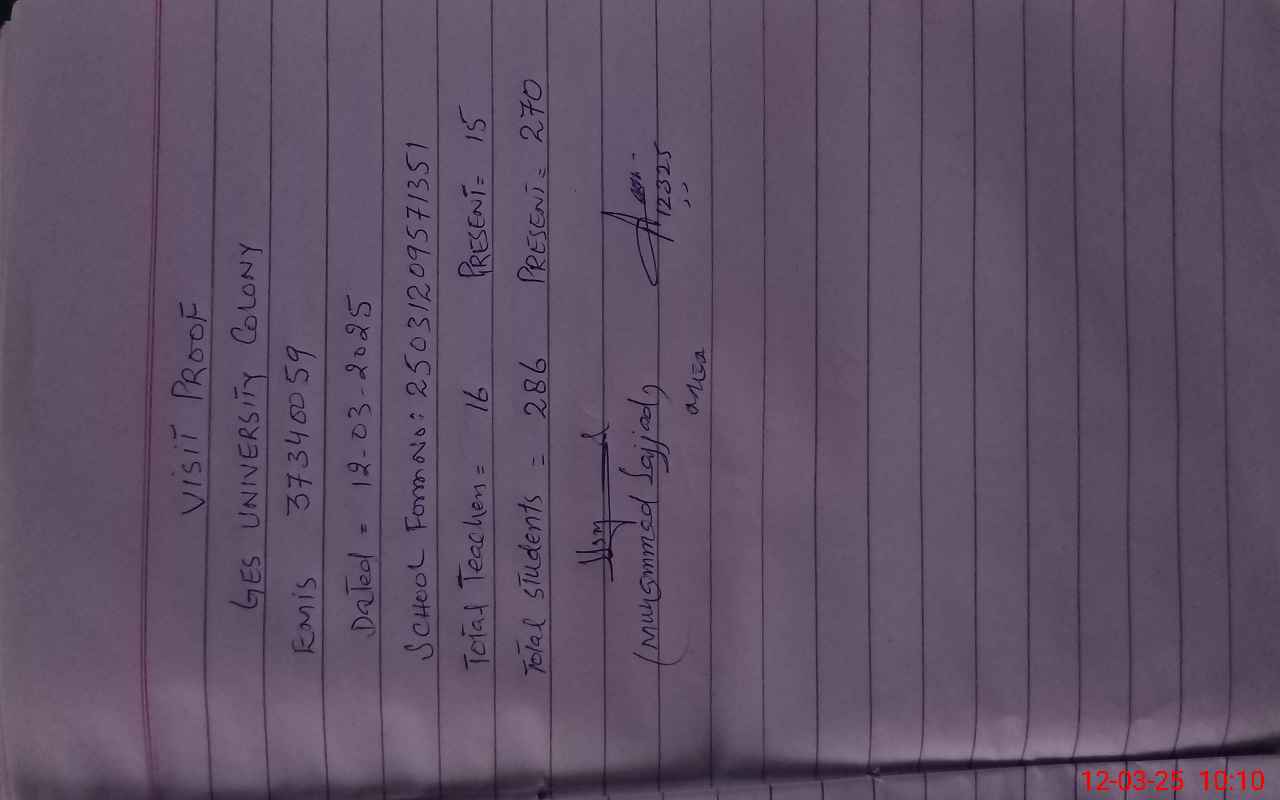 VISIT PROOF
GES UNIVERSITY COLONY
EMIS 37340059
Dated = 12-03-2025
SCHOOL FormNo: 25031209571351
Total Teachers = 16 PRESENT = 15
Total students = 286 PRESENT = 270
(Muhammad Sajjad)
12325
12-03-25 10:10